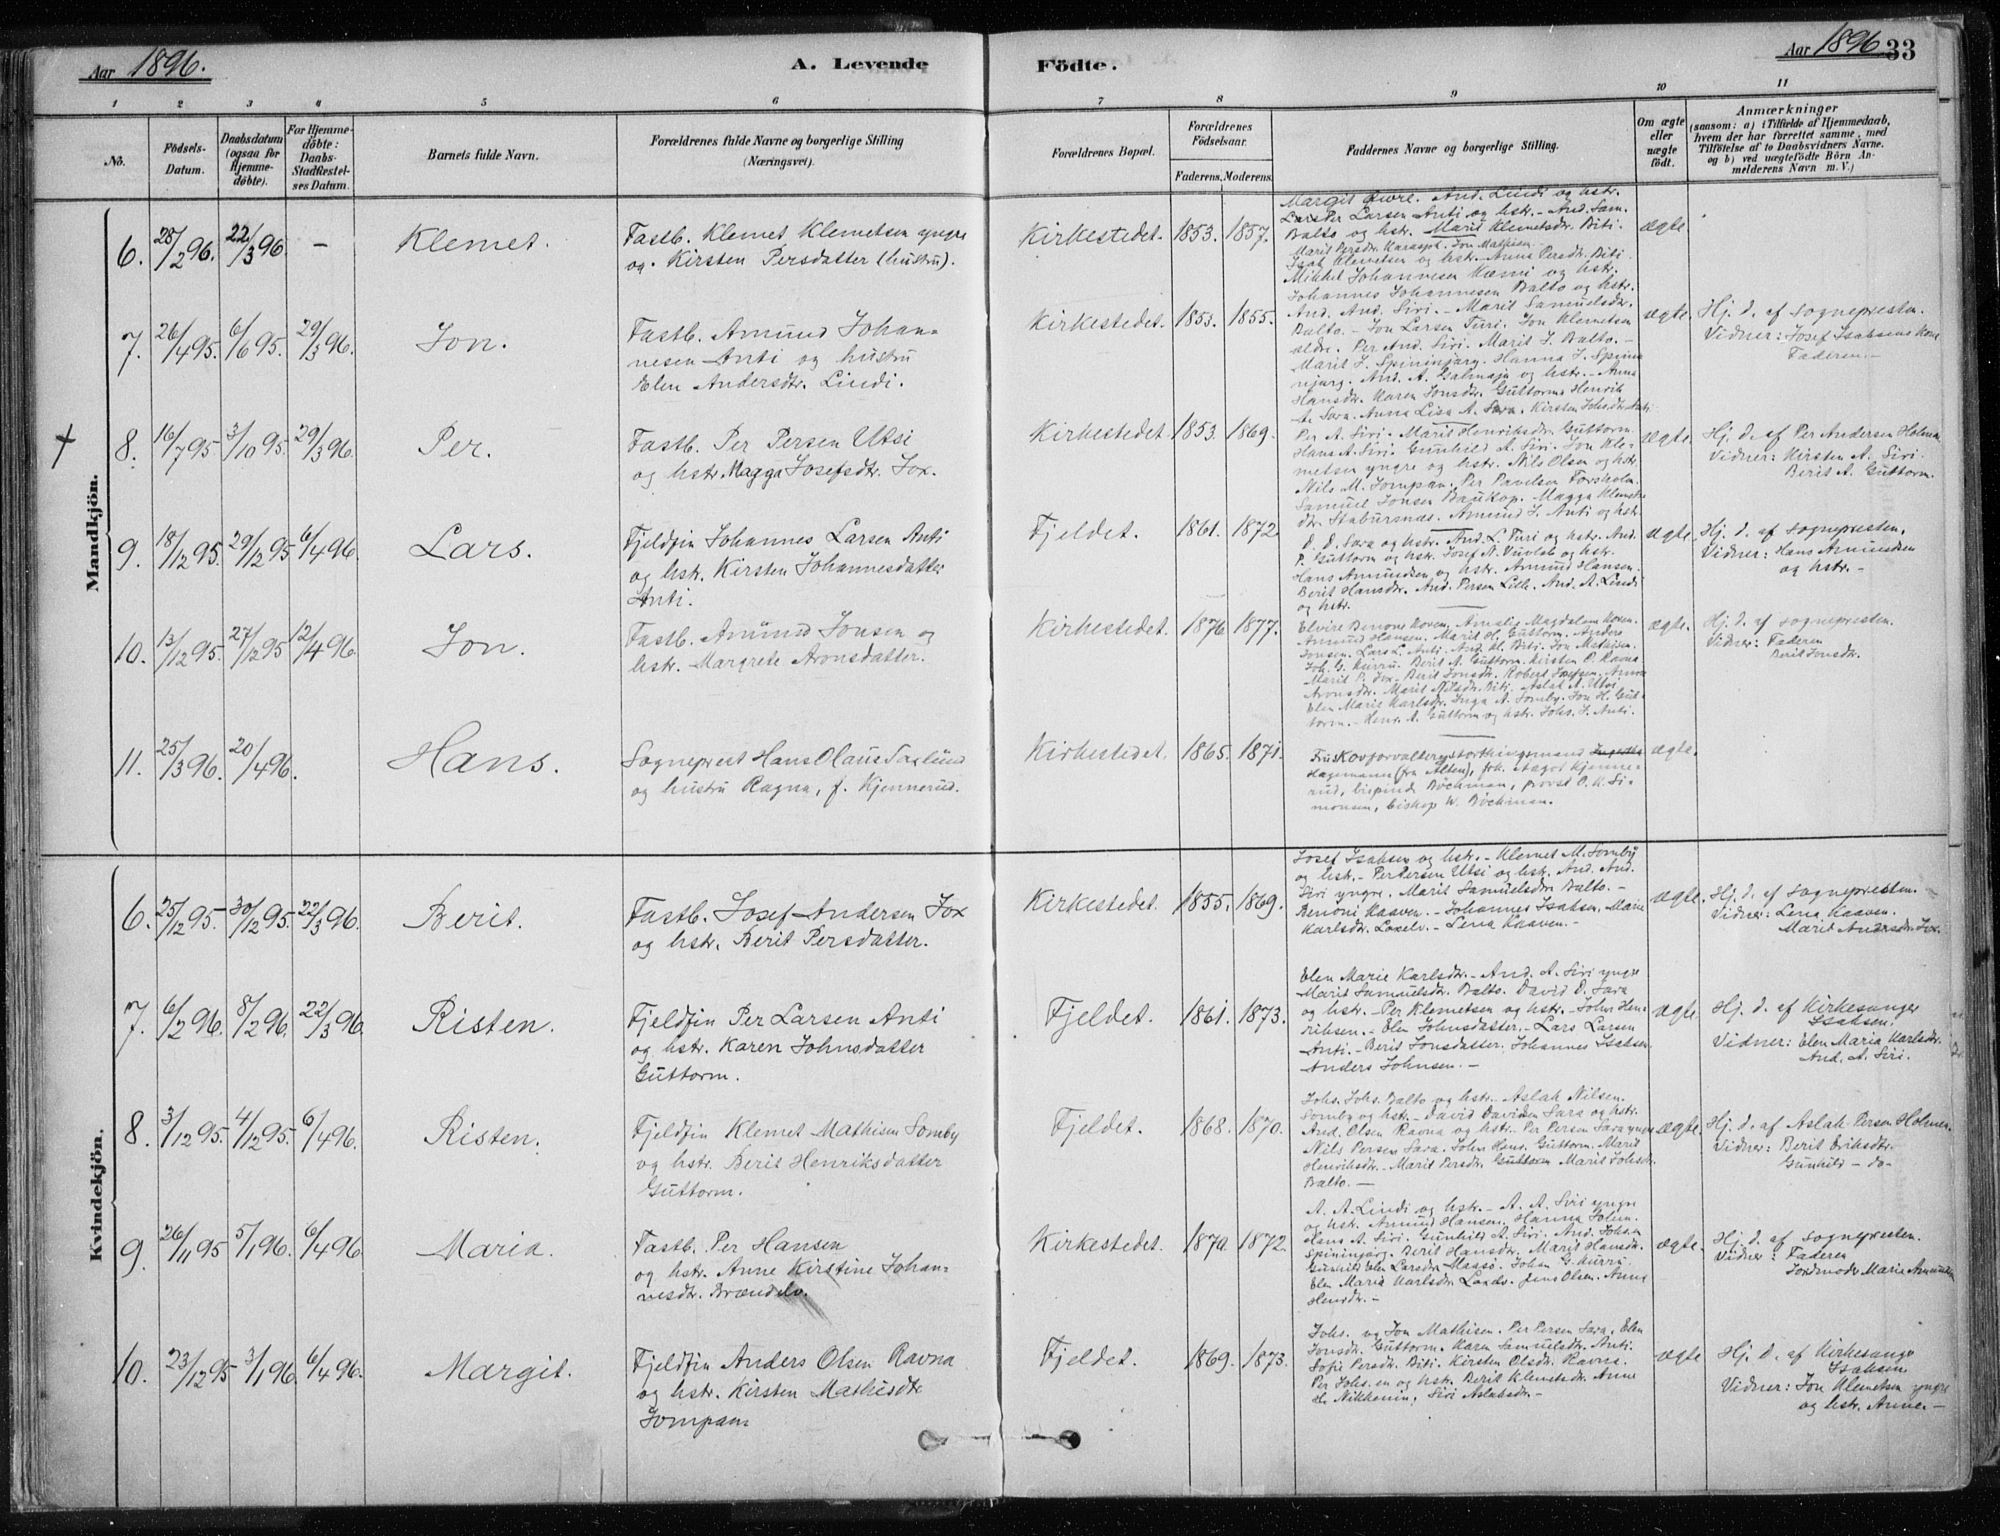 Aar 1896.
A. Levende
Födte.
Aar 1896
33
1 2 3 4 5 6 7 8 9 10 11
No.
Födsels-
Datum.
Daabsdatum
(ogsaa for
Hjemme-
döbte).
For Hjemme-
döbte:
Daabs-
Stadfæstel-
ses Datum.
Barnets fulde Navn.
Forældrenes fulde Navne og borgerlige Stilling
(Næringsvei).
Forældrenes Bopæl.
Forældrenes
Födselsaar.
Faderens. Moderens.
Faddernes Navne og borgerlige Stilling.
Om ægte
eller
uægte
födt.
Anmærkninger
(saasom: a) i Tilfælde af Hjemmedaab,
hvem der har forrettet samme, med
Tilföielse af to Daabsvidners Navne.
og b) ved uægtefödte Börn An-
melderens Navn m. V.)
Mandkjön.
6. 28/2 96. 22/3 96 – Klemet.
Fastb. Klemet Klemetsen yngre
og. Kirsten Persdatter (hustru).
Kirkestedet. 1853. 1857.
Margit. And. Lindi og hstr.
Per Larsen Anti og hstr. – And. Sam.
Balto og hstr. Marit Klemetsdtr. Biti.
Marit Persdtr. Karasjok. Jon Mathisen.
Isak Klemetsen og hstr. Anna Persdtr. Biti
ægte
7. 26/4 95. 6/6 95. 29/3 96. Jon.
Fastb. Amund Johan-
nesen Anti og hustru
Elen Andersdtr. Lindi.
Kirkestedet. 1853. 1855.
Mikkel Johannesen og hstr.
Johannes Johannesen Balto og hstr.
And. And. Siri. – Marit Samuelsdtr.
Balto. – Jon Larsen Turi. Jon Klemetsen
ældre. Per And. Siri. Marit I. Balto. –
Marit I. Spininjarg. Hanna I. Spini
njarg. And. A. og hstr. – Anna
Hansdtr. Karen Jonsdtr. Guttorm. Henrik
A. Sara. Anna Lisa A. Sara. Kirsten Johs.dtr. Anti
ægte.
Hj. d. af sognepresten.
Vidner: Josef Isaksens Kone
Faderen. –
+ 8. 16/7 95 3/10 95. 29/3 96. Per.
Fastb. Per Persen Utsi
og hstr. Magga Josefsdtr. Jox.
Kirkestedet. 1853. 1869.
Per A. Siri. – Marit Henriksdtr. Guttorm.
Hans A. Siri. Gunhild A. Siri. Jon Kle-
metsen yngre og hstr. Nils Olsen og hstr.
Nils M. Jompan. Per Pavelsen Forsholm.
Samuel Jonsen Baukop. Magga Klemets
dtr. Stabursnæs. Amund J. Anti og hstr.
ægte.
Hj. d. af Per Andersen Holmen
Vidner: Kirsten A. Siri
Berit A. Guttorm.
9. 18/12 95. 29/12 95 6/4 96. Lars.
Fjeldfin Johannes Larsen Anti
og hstr. Kirsten Johannesdatter
Anti.
Fjeldet. 1861. 1872
D. D. Sara og hstr. And. L. Turi og hstr. And.
P. Guttorm og hstr. Josef N. Vuolab og hstr.
Hans Amundsen og hstr. Amund Hansen.
Berit Hansdtr. And. Persen Lille. And. A. Lindi
og hstr.
ægte.
Hj. d. af sognepresten.
Vidner: Hans Amundsen
og hstr. –
10. 13/12 95. 27/12 95 12/4 96. Jon.
Fastb. Amund Jonsen og
hstr. Margrete Aronsdatter.
Kirkestedet. 1876 1877.
Elvire Benone Koven. Amalie Magdalena Koven.
Amund Hansen. Marit H. Guttorm. Anders
Jonsen. Lars L. Anti. And. Kl. Biti. Jon Mathisen.
Joh. G. Kurru. Berit A. Guttorm. Kirsten P. Ravna
Marit P. Jox. Berit Jonsdtr. Robert Josefsen. Anna
Aronsdtr. Marit Nilsdtr. Biti. Aslak A. Utsi.
Elen Marie Karlsdtr. Inga A. Somby. Jon H. Gut-
torm. – Henr. A. Guttorm og hstr. Johs. J. Anti.
ægte.
Hj. d. af sognepresten.
Vidner: Faderen
Berit Jonsdtr.
11. 25/3 96. 20/4 96. Hans.
Sogneprest Hans Olaus Saglund
og hustru Ragna, f. Kjennerud.
Kirkestedet. 1865. 1871.
Frus Kovforvalter og storthingsmand
Hagemann (fra Alten), frk. Aagot Kjenne-
rud, bispinde Böckman, provst D. K. Si-
monsen, biskop W. Böckman.
ægte.
Kvindekjön.
6. 25/12 95. 30/12 95. 22/3 96. Berit.
Fastb. Josef Andersen Jox
og hstr. Berit Persdatter.
Kirkestedet. 1855. 1869.
Josef Isaksen og hstr. – Klemet M. Somby
og hstr. – Per Persen Utsi og hstr. And. And.
Siri yngre. Marit Samuelsdtr. Balto. –
Benoni Kaaven. – Johannes Isaksen. Marie
Karlsdtr. Laxelv. – Lena Kaaven. –
ægte.
Hj. d. af sognepresten.
Vidner: Lena Kaaven.
Marit Andersdtr. Jox.
7. 6/2 96. 8/2 96. 22/3 96. Risten.
Fjeldfin Per Larsen Anti
og hstr. Karen Johnsdatter
Guttorm.
Fjeldet. 1861. 1873.
Elen Marie Karlsdtr. – And. A. Siri yngre
Marit Samuelsdtr. Balto. David D. Sara
og hstr. – Per Klemetsen og hstr. – John Hen-
riksen. – Elen Johnsdatter. – Lars Larsen
Anti. – Berit Jonsdatter. Johannes Isaksen.
Anders Johnsen. –
ægte.
Hj. d. af Kirkesanger
Isaksen.
Vidner: Elen Maria Karlsdtr.
And. A. Siri.
8. 3/12 95. 4/12 95. 6/4 96. Risten.
Fjeldfin Klemet Mathisen Somby
og hstr. Berit Henriksdatter
Guttorm.
Fjeldet. 1868. 1870.
Johs. Johs. Balto og hstr. – Aslak Nilsen
Somby og hstr. – David Davidsen Sara og hstr.
And. Olsen Ravna og hstr. Per Persen Sara yngre
Nils Persen Sara. John Henr. Guttorm. Marit
Henriksdtr. – Marit Persdtr. Guttorm Marit Johsdtr.
Balto. –
ægte.
Hj. d. af Aslak Persen Holmen.
Vidner: Berit Eriksdtr.
Gunhild – do –
9. 26/11 95 5/1 96. 6/4 96 Maria.
Fastb. Per Hansen
og hstr. Anne Kirstine Johan-
nesdtr. Brændelv.
Kirkestedet. 1870. 1872.
A. A. Lindi og hstr. – A. A. Siri yngre
og hstr. Amund Hansen. Hanna John.
Hans A. Siri. Gunhild A. Siri. And. Johsen
Spininjarg. Berit Hansdtr. Marit Hansdtr.
Gunhild Elen Larsdtr. Maasö. Johan G. Kurru.
Elen Maria Karlsdtr. Jens Olsen. Anna
Henrdtr. –
ægte.
Hj. d. af sognepresten.
Vidner: Faderen
Jordmoder Maria Amundsen
10. 23/12 95 3/1 96. 6/4 96. Margit.
Fjeldfin Anders Olsen Ravna
og hstr. Kirsten Mathisdtr
Jompan
Fjeldet. 1869. 1873.
Johs. og Jon Mathisen. Per Persen Sara. Elen
Jonsdtr. Guttorm. Karen Samuelsdtr. Anti.
Sofie Persdtr. Biti. Kirsten Olsdtr. Ravna.
Per Johs.en og hstr. Berit Klemetsdtr. Anne
H. Nikkonin. Siri Aslaksdtr. –
ægte
Hj. d. af Kirkesange
Isaksen
Vidner: Jon Klemetsen yngre
og hstr. Anne. –